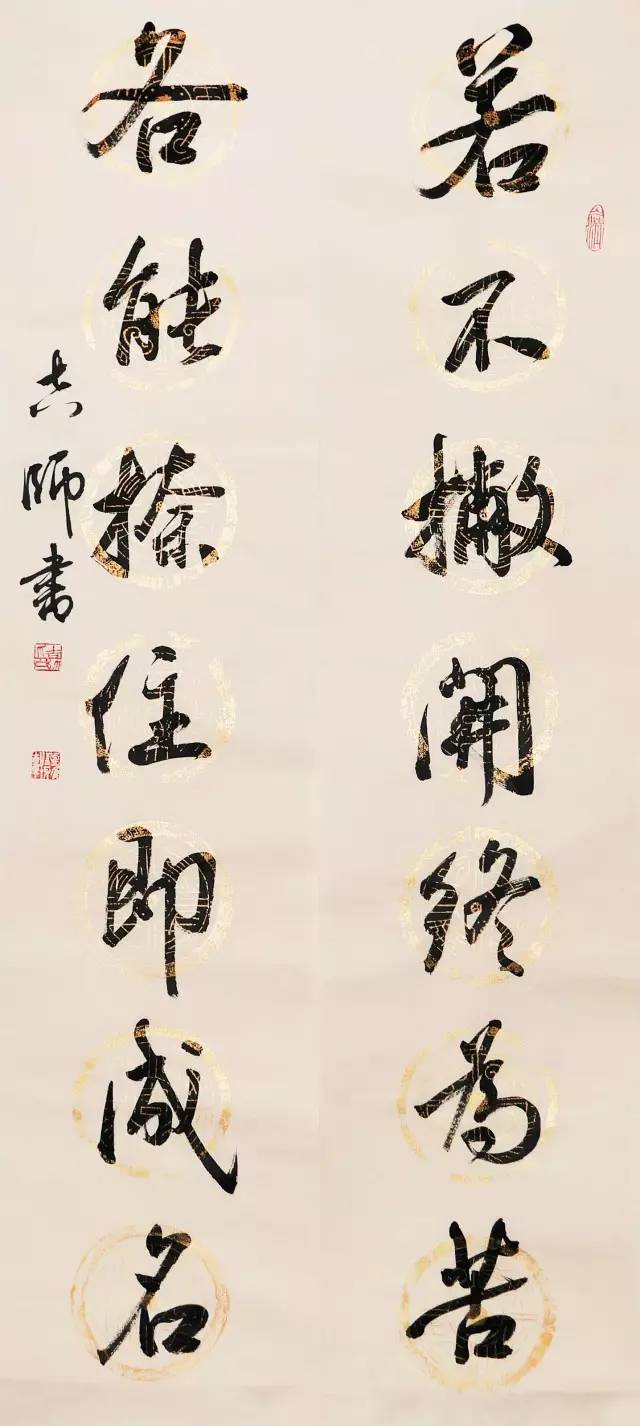 若不撇開終為苦
各能捺住即成名
師書